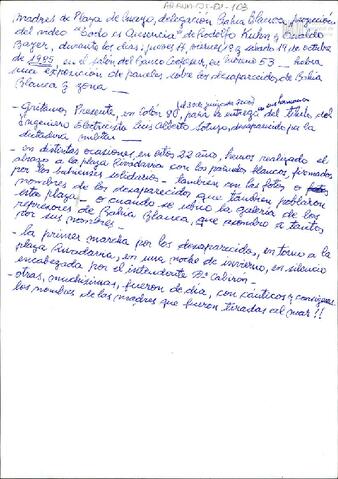 AR-BUNM-DS-DU-103
Madres de Plaza de Mayo, delegación Bahía Blanca, proyección
del video "Todo es Ausencia" de Rodolfo Kuhn y Osvaldo
Bayer, durante los días: jueves 12, viernes 13 y sábado 14 de octubre
de 1995, en el salón del Banco Coopesur, en Chiclana 53 — hubo
una exposición de paneles sobre los desaparecidos de Bahía
Blanca y zona —
- Gritamos, Presente, en Colón 80, para la entrega del título de
Ingeniero Electricista Luis Alberto Sotuyo, desaparecido por la
dictadura militar —
- en distintas ocasiones, en estos 22 años, hemos realizado el
abrazo a la plaza Rivadavia con los pañuelos blancos, firmados
por los bahienses solidarios — también con las fotos o
nombres de los desaparecidos que también poblaron
esta plaza — o cuando se hizo la galería de los
represores de Bahía Blanca, que asombró a tantos
por sus nombres —
- la primer marcha por los desaparecidos, en torno a la
plaza Rivadavia, en una noche de invierno, en silencio
encabezada por el intendente Dr Cabirón —
- otras, muchísimas, fueron de día, con cánticos y consignas
los nombres de las madres que fueron tiradas al mar!!